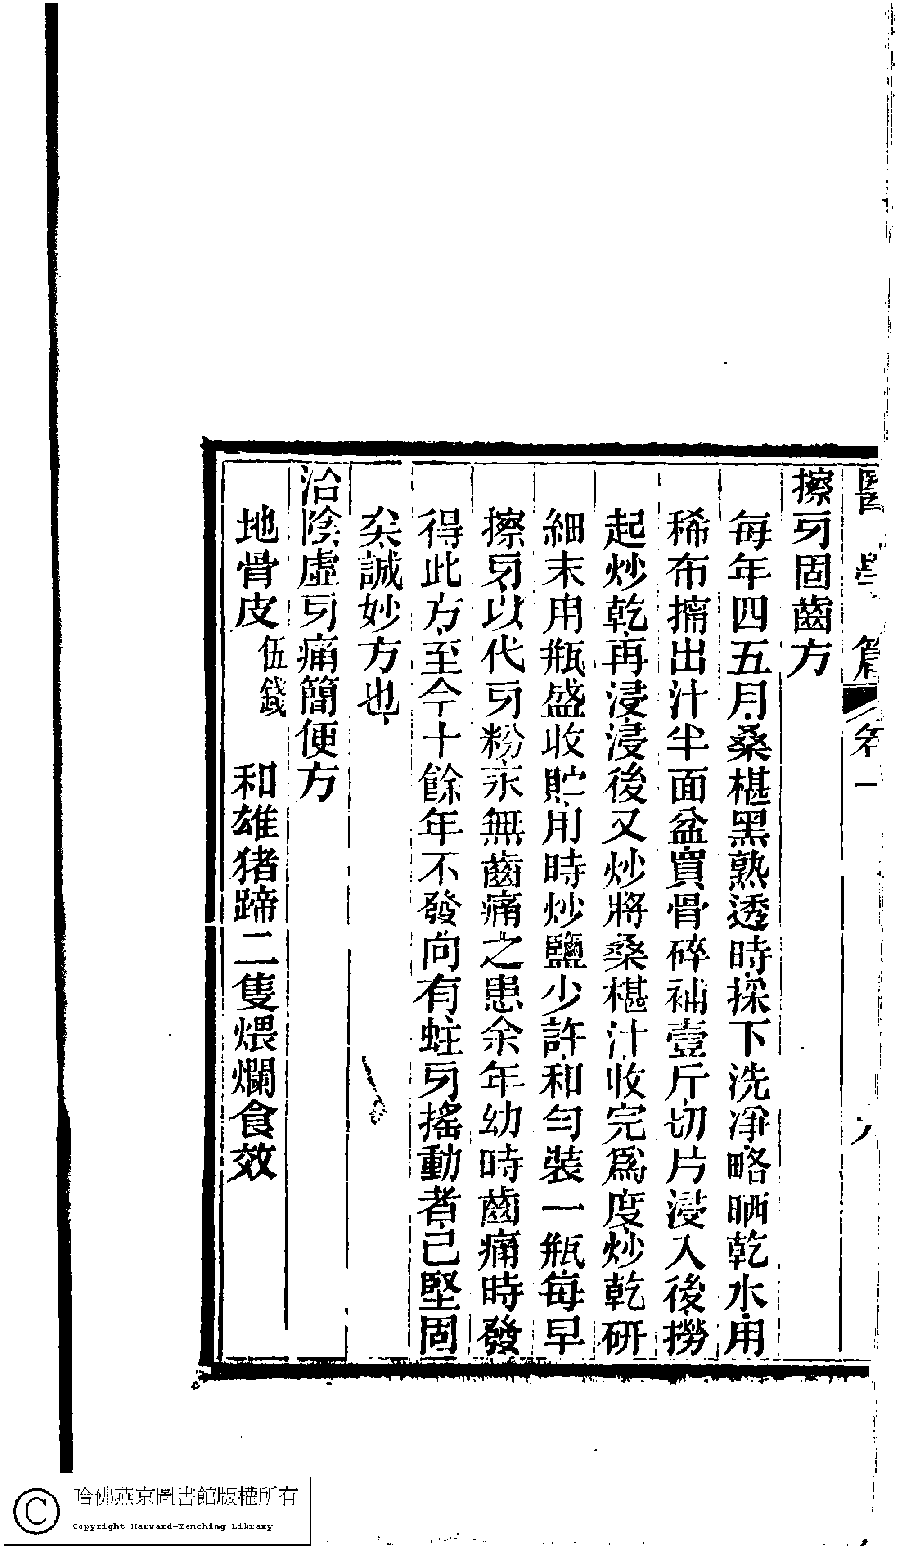 醫學篇 卷一 九
擦牙固齒方
每年四五月桑椹黑熟透時採下洗凈略晒乾水用
稀布擠出汁半面盆買骨碎補壹斤切片浸入後撈
起炒乾再浸浸後又炒將桑椹汁收完為度炒乾研
細末用瓶盛收貯用時炒鹽少許和勻裝一瓶每早
擦牙以代牙粉永無齒痛之患余年幼時齒痛時發
得此方至今十餘年不發向有蛀牙搖動者已堅固
矣誠妙方也
治陰虛牙痛簡便方
地骨皮伍錢 和雄猪蹄二隻煨爛食效
哈佛燕京圖書館版權所有
Copyright Harvard-Yenching Library